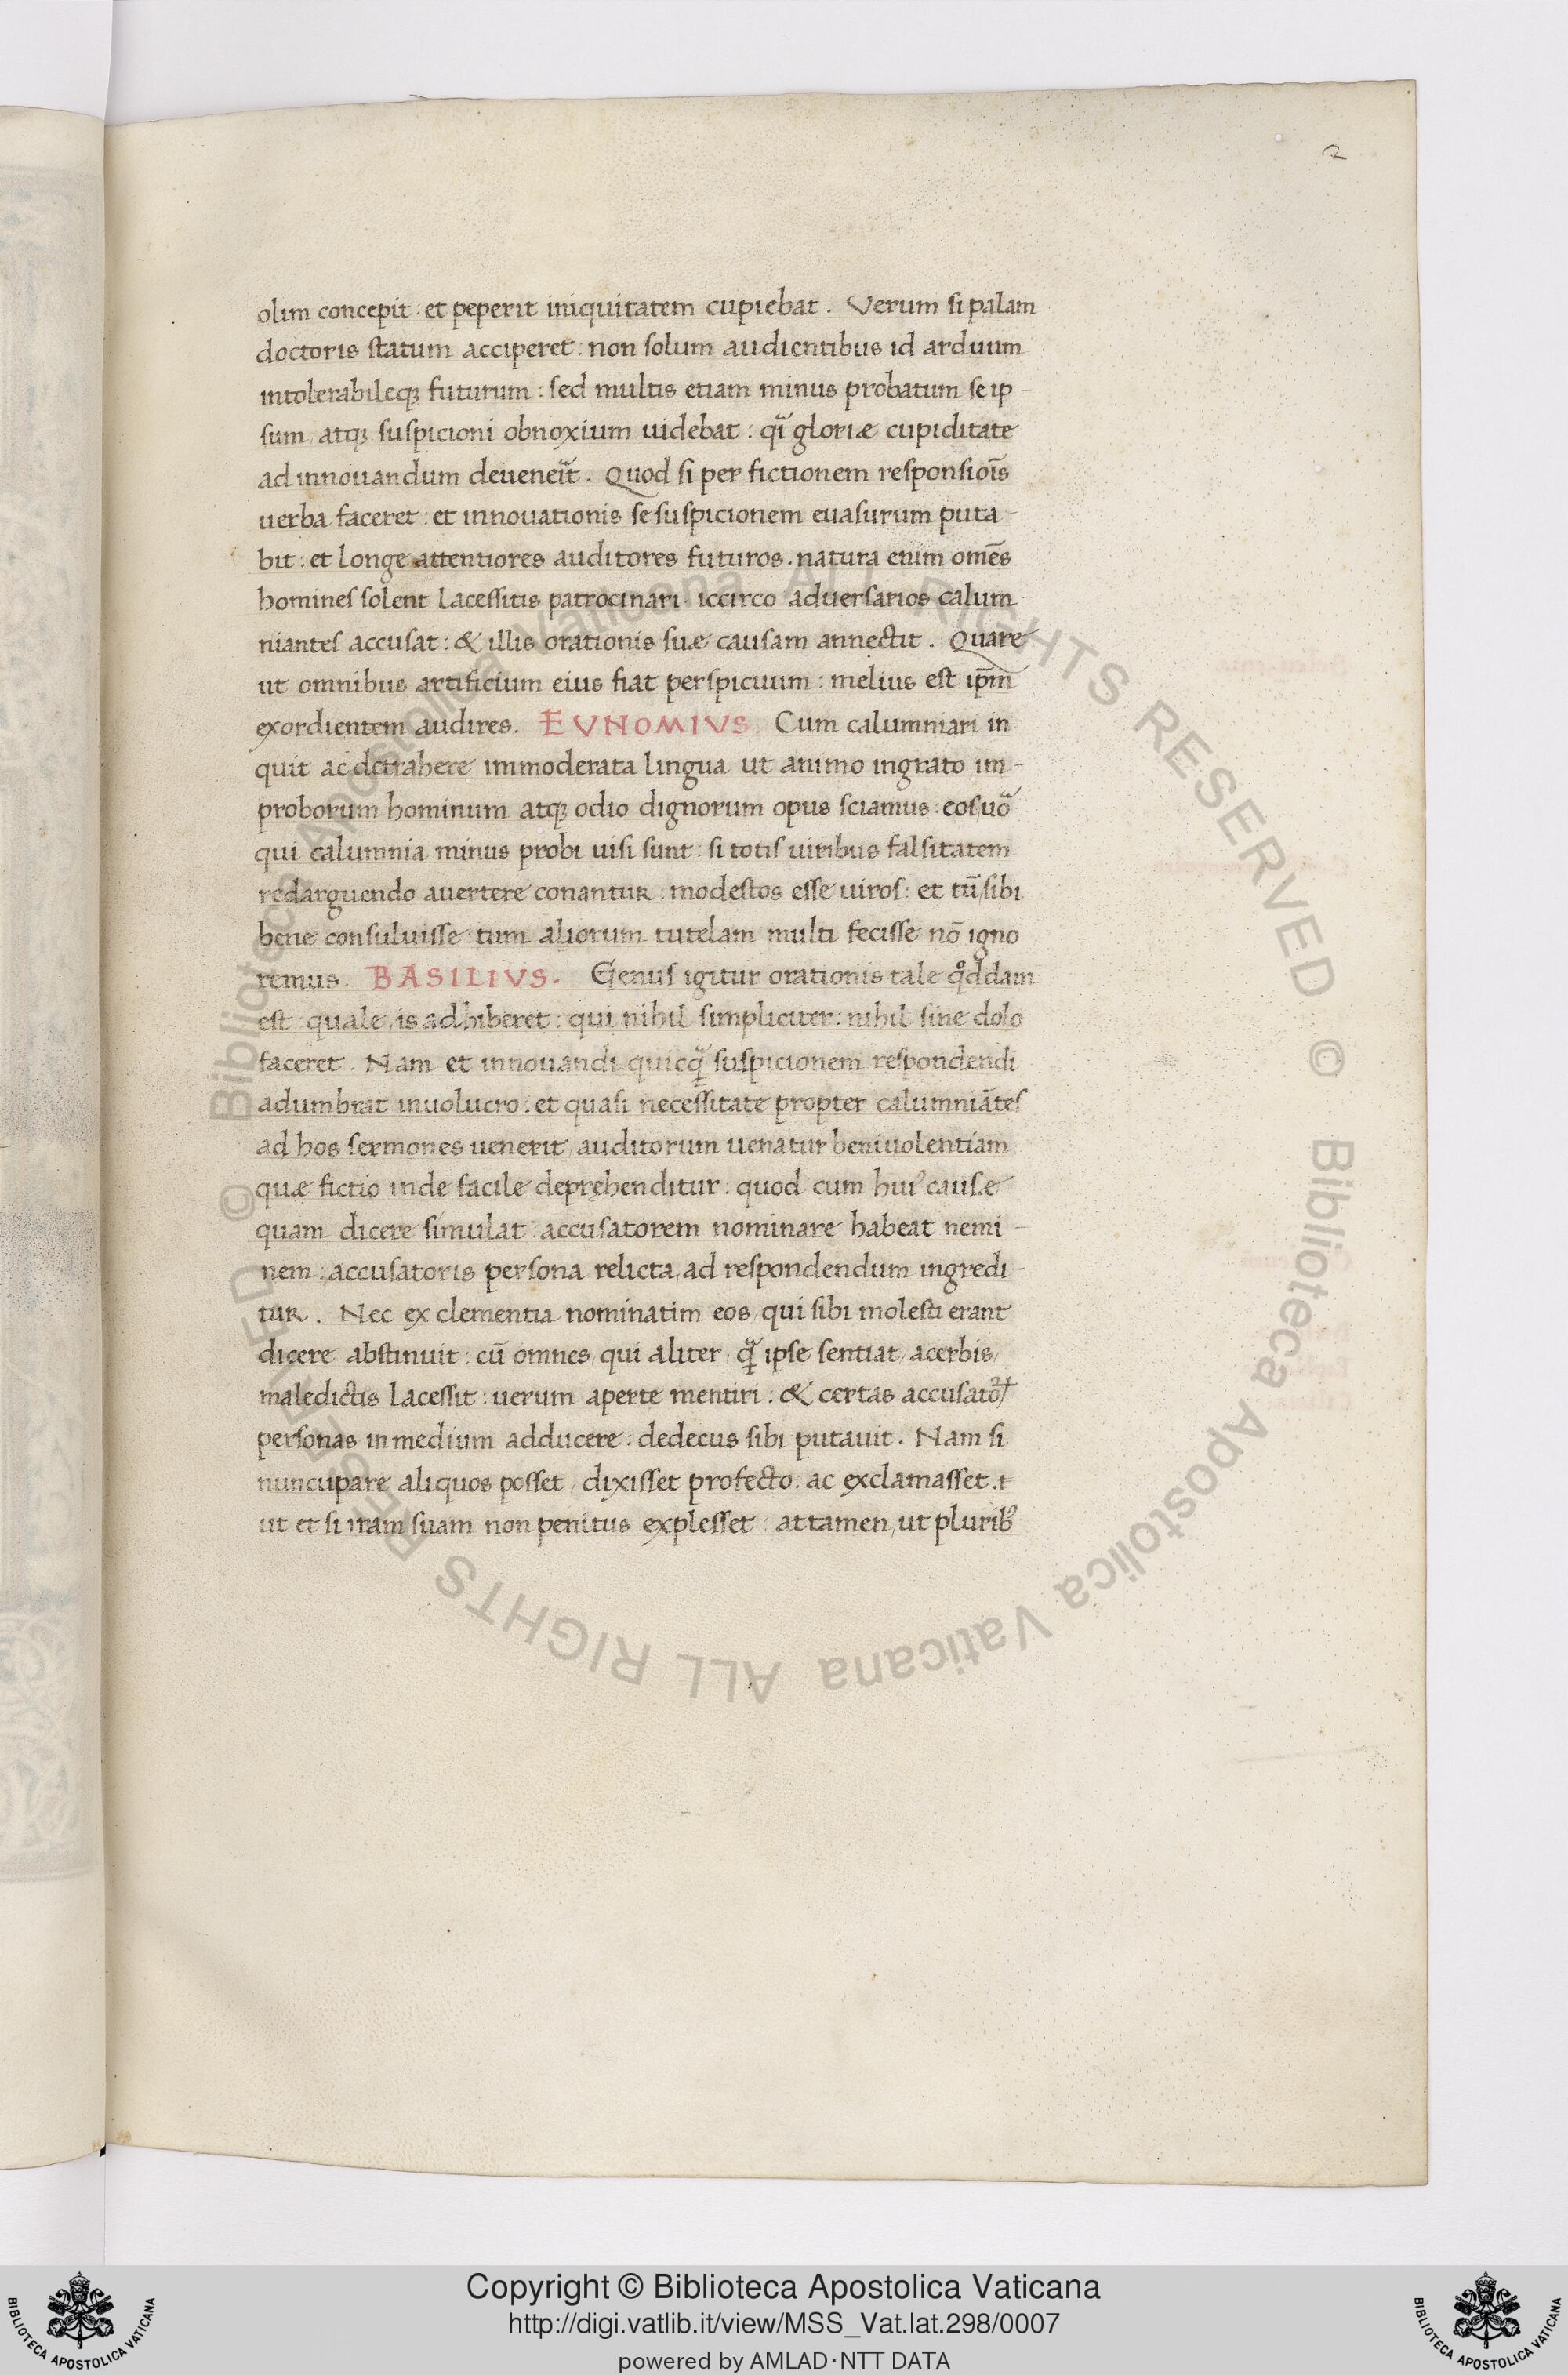 2
olim concepit : et peperit iniquitatem cupiebat . Verum si palam
doctoris statum acciperet : non solum audientibus id arduum
intolerabileqꝫ futurum : sed multis etiam minus probatum se ip-
sum, atqꝫ suspicioni obnoxium uidebat : qĩ gloriæ cupiditate
ad innouandum deueneĩt . Quod si per fictionem responsiõis
uerba faceret : et innouationis se suspicionem euasurum puta-
bit : et longe attentiores auditores futuros . natura enim omẽs
homines solent lacessitis patrocinari . iccirco aduersarios calum-
niantes accusat : & illis orationis suæ causam annectit . Quare
ut omnibus artificium eius fiat perspicuum : melius est ip̃m
exordientem audires. EVNOMIVS. Cum calumniari in
quit ac detrahere immoderata lingua ut animo ingrato im-
proborum hominum atqꝫ odio dignorum opus sciamus : eos uõ
qui calumnia minus probi uisi sunt : si totis uiribus falsitatem
redarguendo auertere conantur : modestos esse uiros : et tũ sibi
bene consuluisse tum aliorum tutelam multi fecisse nõ igno
remus . BASILIVS. Genus igitur orationis tale qͦddam
est quale, is adhiberet : qui nihil simpliciter : nihil sine dolo
faceret . Nam et innouandi quicq̃ suspicionem respondendi
adumbrat inuolucro : et quasi necessitate propter calumniãtes
ad hos sermones uenerit, auditorum uenatur beniuolentiam
quæ fictio inde facile deprehenditur : quod cum huiꝰ causæ
quam dicere simulat : accusatorem nominare habeat nemi-
nem : accusatoris persona relicta, ad respondendum ingredi-
tur . Nec ex clementia nominatim eos, qui sibi molesti erant
dicere abstinuit : cũ omnes, qui aliter, q̃ ipse sentiat, acerbis,
maledictis lacessit : uerum aperte mentiri : & certas accusatoꝝ
personas in medium adducere : dedecus sibi putauit . Nam si
nuncupare aliquos posset, dixisset profecto . ac exclamasset . t
ut et si iram suam non penitus explesset : attamen, ut pluribꝰ
© Biblioteca Apostolica Vaticana ALL RIGHTS RESERVED © Biblioteca Apostolica Vaticana ALL RIGHTS RESERVED
BIBLIOTECA APOSTOLICA VATICANA
Copyright © Biblioteca Apostolica Vaticana
http://digi.vatlib.it/view/MSS_Vat.lat.298/0007
powered by AMLAD·NTT DATA
BIBLIOTECA APOSTOLICA VATICANA